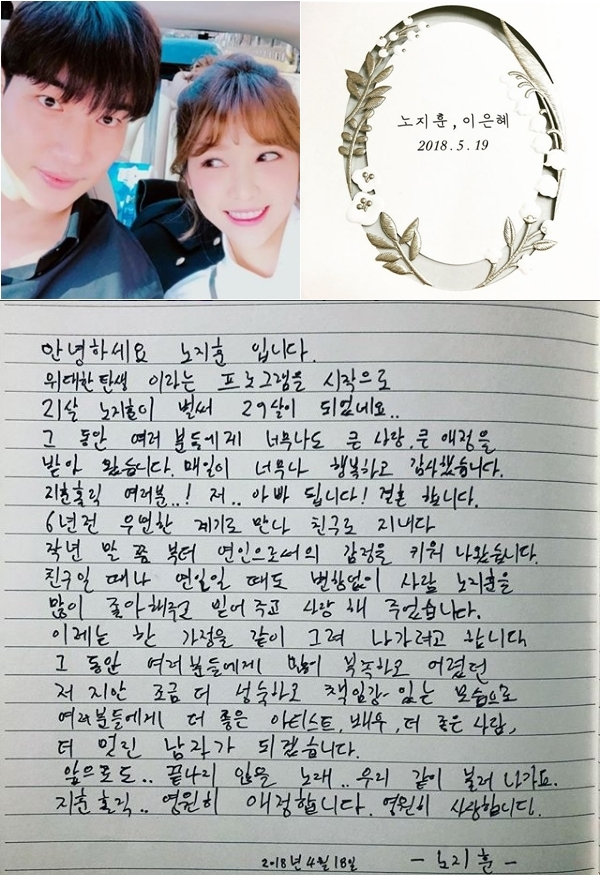 노지훈, 이은혜
2018.5.19
안녕하세요 노지훈 입니다.
위대한탄생 이라는 프로그램을 시작으로
21살 노지훈이 벌써 29살이 되었네요..
그 동안 여러분들에게 너무나도 큰 사랑.큰 애정을
받아 왔습니다. 매일이 너무나 행복하고 감사했습니다.
지훈홀릭 여러분..! 저.. 아빠 됩니다! 결혼 합니다.
6년전 우연한 계기로 만나 친구로 지내다
작년 말 쯤 부터 연인으로써의 감정을 키워 나왔습니다.
친구일 때나 연일일 때도 변함없이 사람 노지훈을
많이 좋아해주고 믿어 주고 사랑 해 주었습니다.
이제는 한 가정을 같이 그려 나가려고 합니다
그 동안 여러분들에게 많이 부족하고 어렸던
저 지만 조금 더 성숙하고 책임감 있는 모습으로
여러분들에게 더 좋은 아티스트, 배우, 더 좋은 사람,
더 멋진 남자가 되겠습니다.
앞으로도.. 끝나지 않을 노래.. 우리 같이 불러 나가요.
지훈홀릭.. 영원히 애정합니다. 영원히 사랑합니다.
2018년 4월 18일 - 노지훈 -